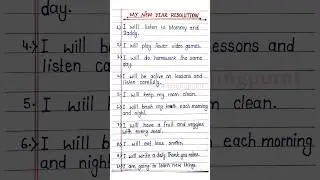 MY NEW YEAR RESOLUTION
1.) I will listen to Mommy and
Daddy.
2.) I will play fewer video games.
3.) I will do homework the same
day.
4.) I will be active on lessons and
listen carefully.
5.) I will keep my room clean.
6.) I will brush my teeth each morning
and night.
7.) I will have a fruit and veggies
with every meal.
8.) I will eat less
9.) I will write a daily thank you notes.
I am going to learn new things.
day.
I will
4. I will
listen
lessons and
5. I will
clean.
6. I will
each morning
and night